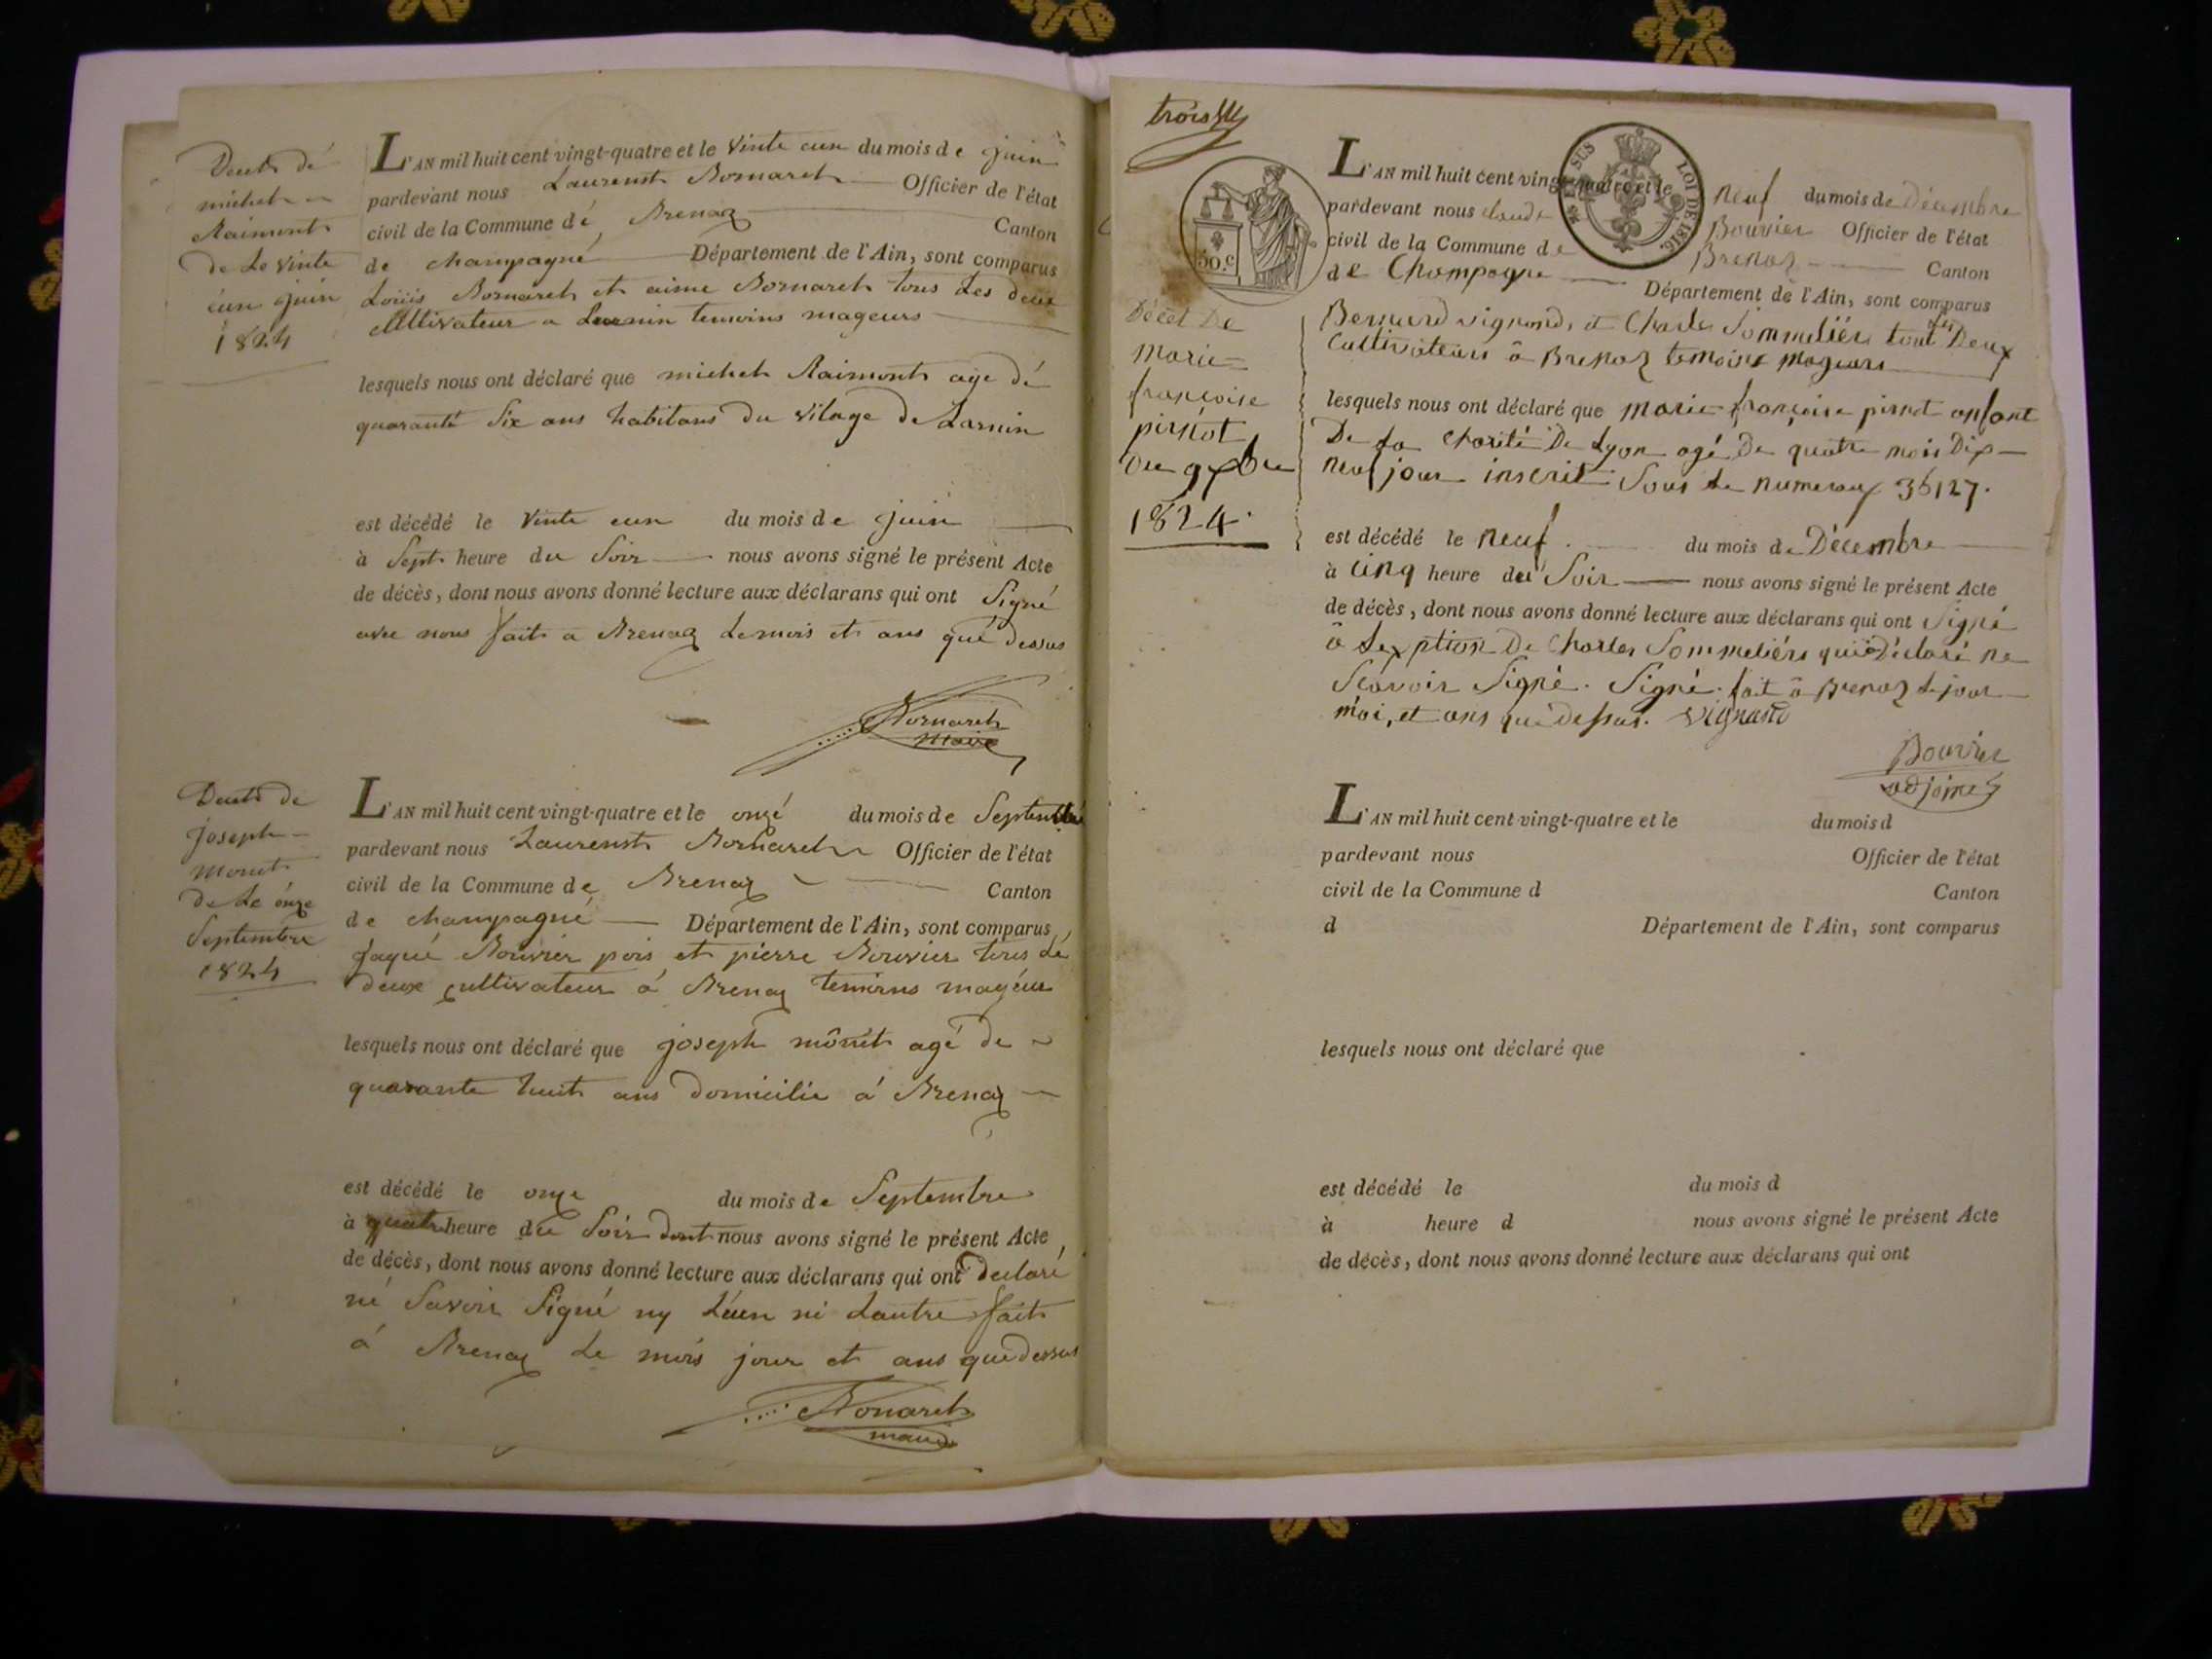 Decets dé
michel
Raimont
de Le vinte
eun juin
1824
L'AN mil huit cent vingt-quatre et le vinte eun du mois de juin
pardevant nous Laurenst Bornaret Officier de l'état
civil de la Commune dé Brenaz Canton
de champagné Département de l'Ain, sont comparus
Loüis Bornaret et aime Bornaret tous Les deux
cultivateur a Larnin temoins mageurs
lesquels nous ont déclaré que michel Raimont age dé
quaranté six ans habitans du vilage de Larnin
est décédé le vinte eun du mois de juin
à Sept heure du Soir nous avons signé le présent Acte
de décès, dont nous avons donné lecture aux déclarans qui ont Signé
avec nous fait a Brenaz Le mois et ans qué dessus
Bornaret
maire
Decets de
joseph
monet
de Le onze
Septembre
1824
L'AN mil huit cent vingt-quatre et le onzé du mois de Septembre
pardevant nous Laurenst Bornaret Officier de l'état
civil de la Commune de Brenaz Canton
de champagné Département de l'Ain, sont comparus
jaqué Bouvier pois et pierre Bouvier tous Lé
deux cultivateur à Brenaz temoins mageur
lesquels nous ont déclaré que joseph mônet agé de
quarante huit ans domicilié à Brenaz
est décédé le onze du mois de Septembre
à quatre heure du Soir dont nous avons signé le présent Acte
de décès, dont nous avons donné lecture aux déclarans qui ont declaré
né Savoir Signé ny L'éun ni Lautre fait
à Brenaz Le mois jour et ans que dessus
Bornaret
maire
trois
50.c
EN SUS
LOI DE 1816.
Décet De
marie=
françoise
pirnot
Du 9 xbre
1824.
L'AN mil huit cent vingt-quatre et le neuf du mois de Décembre
pardevant nous claude Bouvier Officier de l'état
civil de la Commune de Brenaz Canton
de Champagne Département de l'Ain, sont comparus
Bernard vignand, et Charles Sommeliérs tout Les Deux
Cultivateurs à Brenaz temoins mageurs
lesquels nous ont déclaré que marie françoise pirnot anfant
De La charité De Lyon agé De quatre mois Dix
neuf jour inscrit Sous Le numeraux 36127.
est décédé le neuf du mois de Décembre
à cinq heure du Soir nous avons signé le présent Acte
de décès, dont nous avons donné lecture aux déclarans qui ont Signé
à Lexption De Charles Sommeliérs qui à Déclaré ne
Scavoir Signé. Signé. fait à Brenaz Le jour
moi, et ans que dessus. vignand
Bouvier
adjoint
L'AN mil huit cent vingt-quatre et le du mois d
pardevant nous Officier de l'état
civil de la Commune d Canton
d Département de l'Ain, sont comparus
lesquels nous ont déclaré que
est décédé le du mois d
à heure d nous avons signé le présent Acte
de décès, dont nous avons donné lecture aux déclarans qui ont